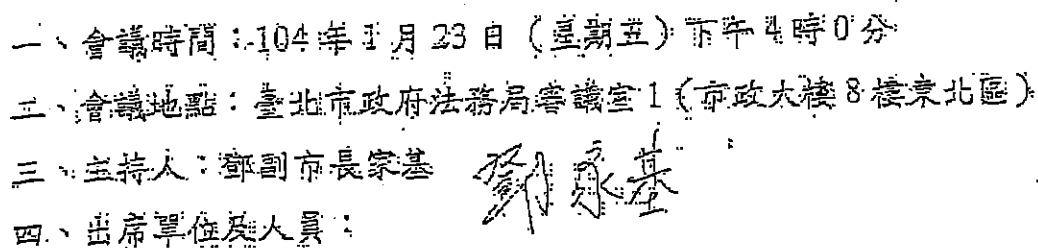 一、會議時間：104年1月23日（星期五）下午4時0分
二、會議地點：臺北市政府法務局審議室1（市政大樓8樓東北區）
三、主持人：鄧副市長家基 鄧家基
四、出席單位及人員：